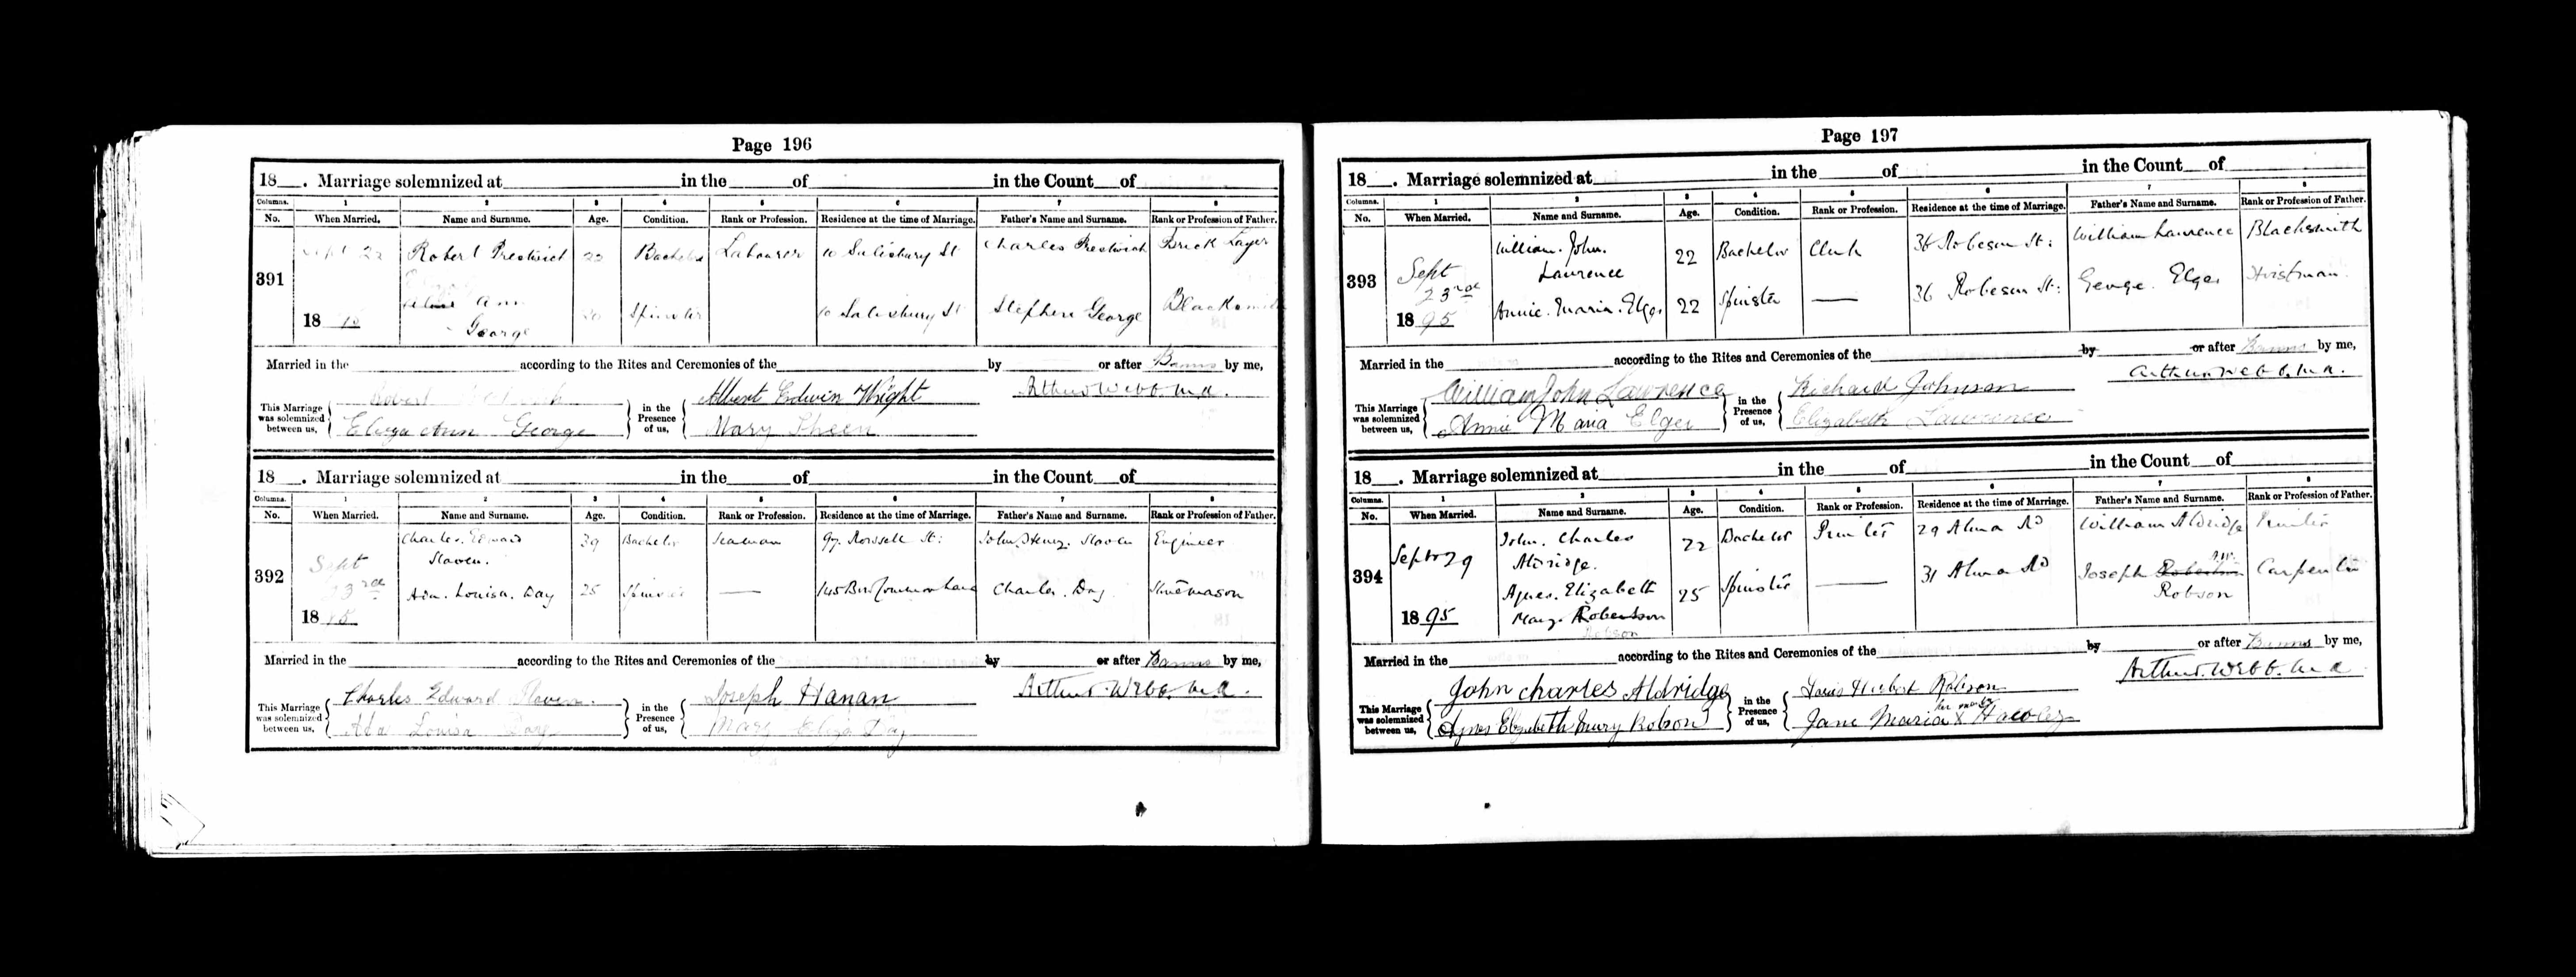 Page 196
18 . Marriage solemnized at in the of in the Count of
Columns. 1 2 3 4 5 6 7 8
No. When Married. Name and Surname. Age. Condition. Rank or Profession. Residence at the time of Marriage. Father's Name and Surname. Rank or Profession of Father.
391
Sept 22
Robert Prestwich 22 Bachelor Labourer 10 Salisbury St Charles Prestwich Brick Layer
Ann
George Spinster 10 Salisbury St Stephen George Blacksmith
18
Married in the according to the Rites and Ceremonies of the by or after Banns by me,
Arthur Webb. M.A.
This Marriage was solemnized between us, Robert
Eliza Ann George
in the Presence of us, Albert Edwin Wright
Mary Sheen
18 . Marriage solemnized at in the of in the Count of
Columns. 1 2 3 4 5 6 7 8
No. When Married. Name and Surname. Age. Condition. Rank or Profession. Residence at the time of Marriage. Father's Name and Surname. Rank or Profession of Father.
392
Sept 23rd
Charles. Edward Slaven. 39 Bachelor Seaman 97. St: John. Henry. Slaven Engineer
Ada. Louisa. Day 25 Spinster — 145 Charles. Day Stonemason
18 95
Married in the according to the Rites and Ceremonies of the by or after Banns by me,
Arthur. Webb. M.A.
This Marriage was solemnized between us, Charles Edward Slaven.
Ada Louisa Day
in the Presence of us, Joseph Hanan
Mary Eliza Day
Page 197
18 . Marriage solemnized at in the of in the Count of
Columns. 1 2 3 4 5 6 7 8
No. When Married. Name and Surname. Age. Condition. Rank or Profession. Residence at the time of Marriage. Father's Name and Surname. Rank or Profession of Father.
393
Sept 23rd
William. John. Lawrence 22 Bachelor Clerk 36 Robeson St: William Lawrence Blacksmith
Annie. Maria. Elger 22 Spinster — 36 Robeson St: George. Elger
18 95
Married in the according to the Rites and Ceremonies of the by or after Banns by me,
Arthur. Webb. M.A.
This Marriage was solemnized between us, William John Lawrence
Annie Maria Elger
in the Presence of us, Richard Johnson
Elizabeth Lawrence
18 . Marriage solemnized at in the of in the Count of
Columns. 1 2 3 4 5 6 7 8
No. When Married. Name and Surname. Age. Condition. Rank or Profession. Residence at the time of Marriage. Father's Name and Surname. Rank or Profession of Father.
394
Septr 29
John. Charles Aldridge. 22 Bachelor Printer 29 Alma Rd William Aldridge Printer
Agnes. Elizabeth 25 Spinster — 31 Alma Rd Joseph Robertson A.W. Carpenter
Mary. Robertson Robson
Robson
18 95
Married in the according to the Rites and Ceremonies of the by or after Banns by me,
Arthur. Webb. M.A.
This Marriage was solemnized between us, John Charles Aldridge
Agnes Elizabeth Mary Robson
in the Presence of us, Louis Herbert Robson
her mark
Jane Maria X